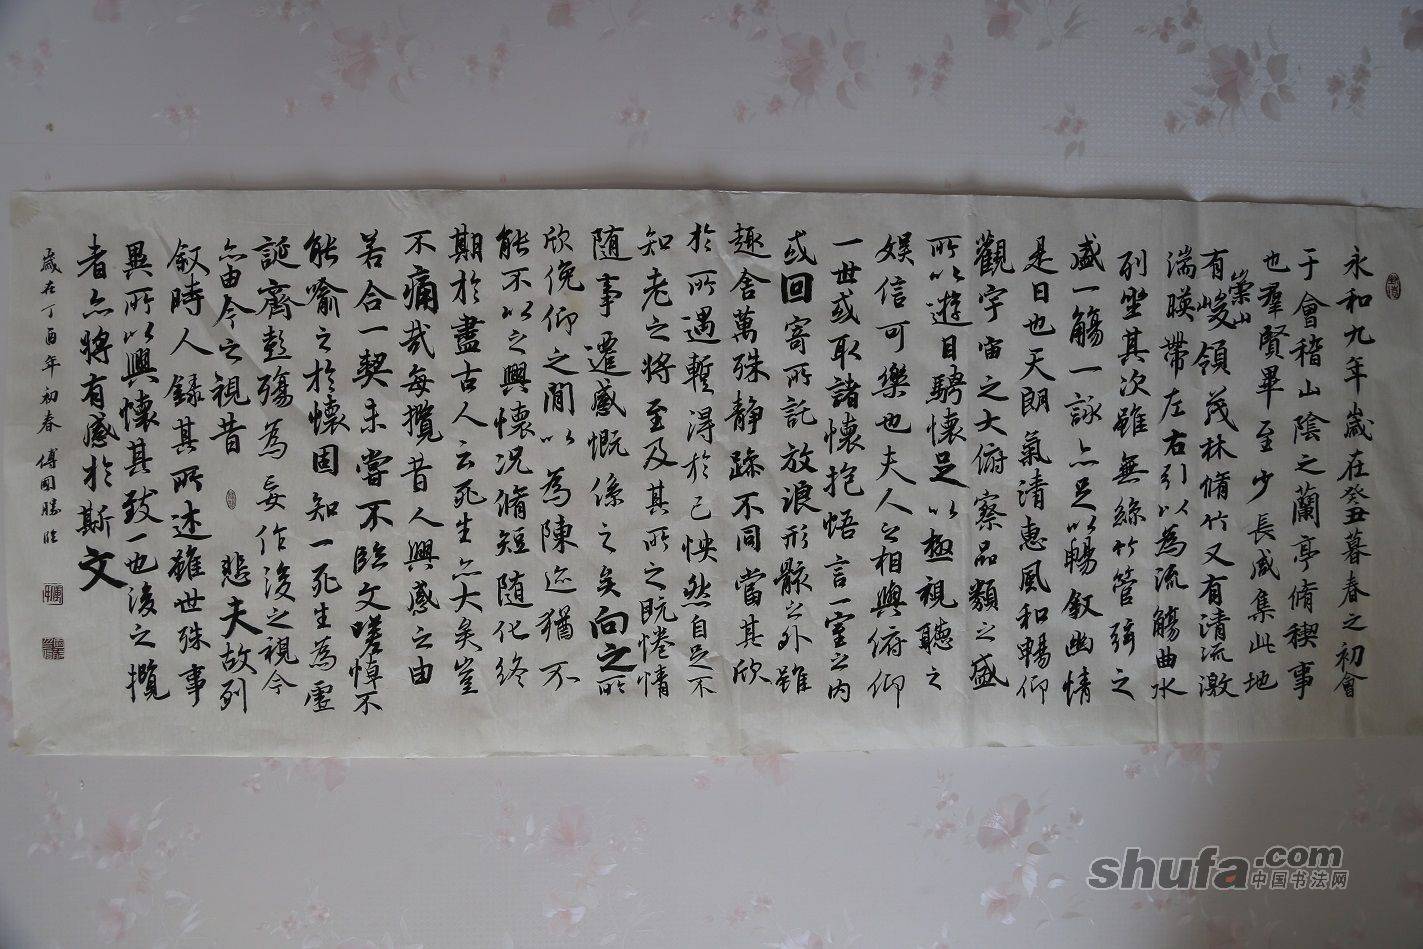 永和九年歲在癸丑暮春之初會
于會稽山陰之蘭亭脩稧事
也羣賢畢至少長咸集此地
崇山
有峻領茂林脩竹又有清流激
湍暎帶左右引以為流觴曲水
列坐其次雖無絲竹管弦之
盛一觴一詠亦足以暢敘幽情
是日也天朗氣清惠風和暢仰
觀宇宙之大俯察品類之盛
所以遊目騁懷足以極視聽之
娛信可樂也夫人之相與俯仰
一世或取諸懷抱悟言一室之內
或回寄所託放浪形骸之外雖
趣舍萬殊靜躁不同當其欣
於所遇暫得於己怏然自足不
知老之將至及其所之既惓情
随事遷感慨係之矣向之所
欣俛仰之閒以為陳迹猶不
能不以之興懷況脩短随化終
期於盡古人云死生亦大矣豈
不痛哉每攬昔人興感之由
若合一契未嘗不臨文嗟悼不
能喻之於懷固知一死生為虛
誕齊彭殤為妄作後之視今
亦由今之視昔 悲夫故列
敘時人錄其所述雖世殊事
異所以興懷其致一也後之攬
者亦將有感於斯文
歲在丁酉年初春 傅国勝臨
shufa.com
中国书法网